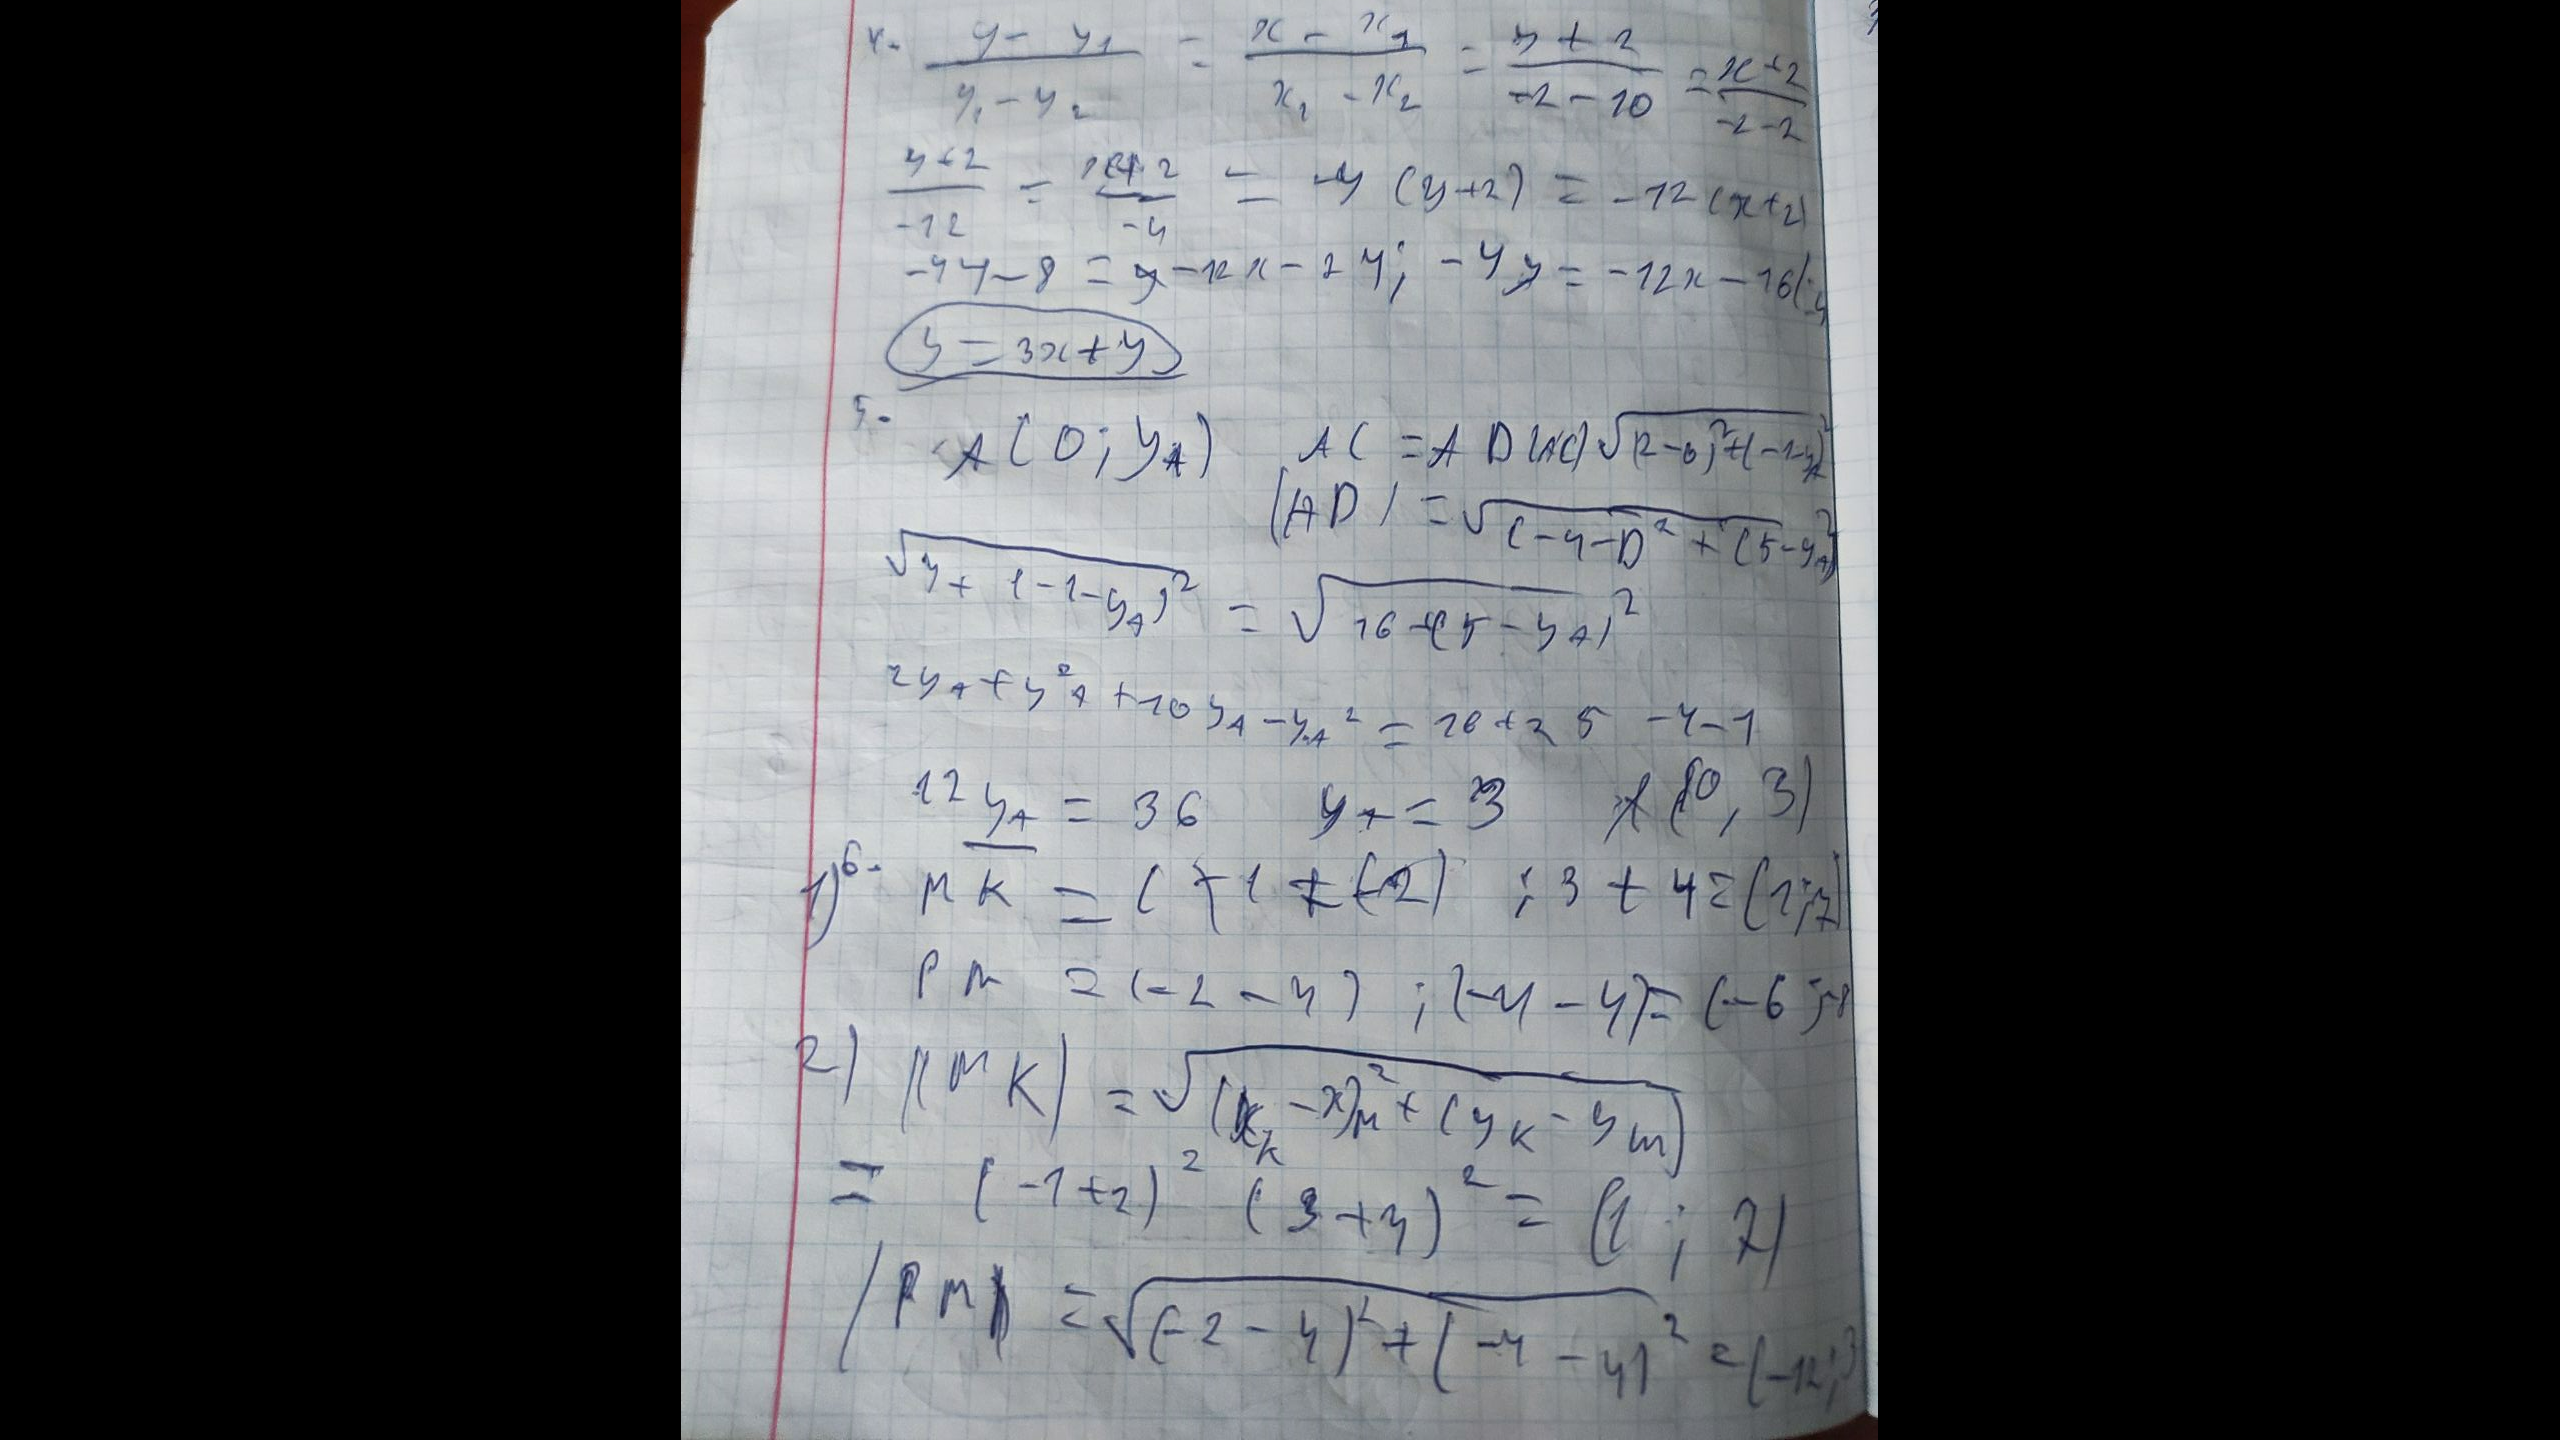 4. (y - y₁)/(y₁ - y₂) = (x - x₁)/(x₁ - x₂) = (y + 2)/(-2 - 10) = (x + 2)/(-2 - 2)
(y + 2)/(-12) = (x + 2)/(-4) = -4 (y+2) = -12 (x+2)
-4y - 8 = -12x - 24; -4y = -12x - 16 (:-4
y = 3x + 4
5. A(0; y_A) AC = AD |AC| √(2-0)² + (-1-y_A)²
|AD| = √(-4-0)² + (5-y_A)²
√4 + (-1-y_A)² = √16 + (5-y_A)²
2y_A + y²_A + 10y_A - y_A² = 16 + 25 - 4 - 1
12y_A = 36 y_A = 3 A(0, 3)
6. 1) MK = (-1 + (-2) ; 3 + 4 = (1; 7)
PM = (-2 - 4) ; (-4 - 4) = (-6; -8
2) |MK| = √(x_K - x)_M² + (y_K - y_m)
= (-1+2)² (3+4)² = (1; 7)
|PM| = √(-2-4)² + (-4-4)² = (-12;